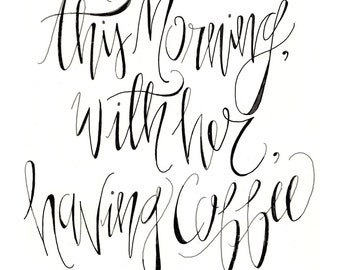 this Morning,
with her,
having Coffee